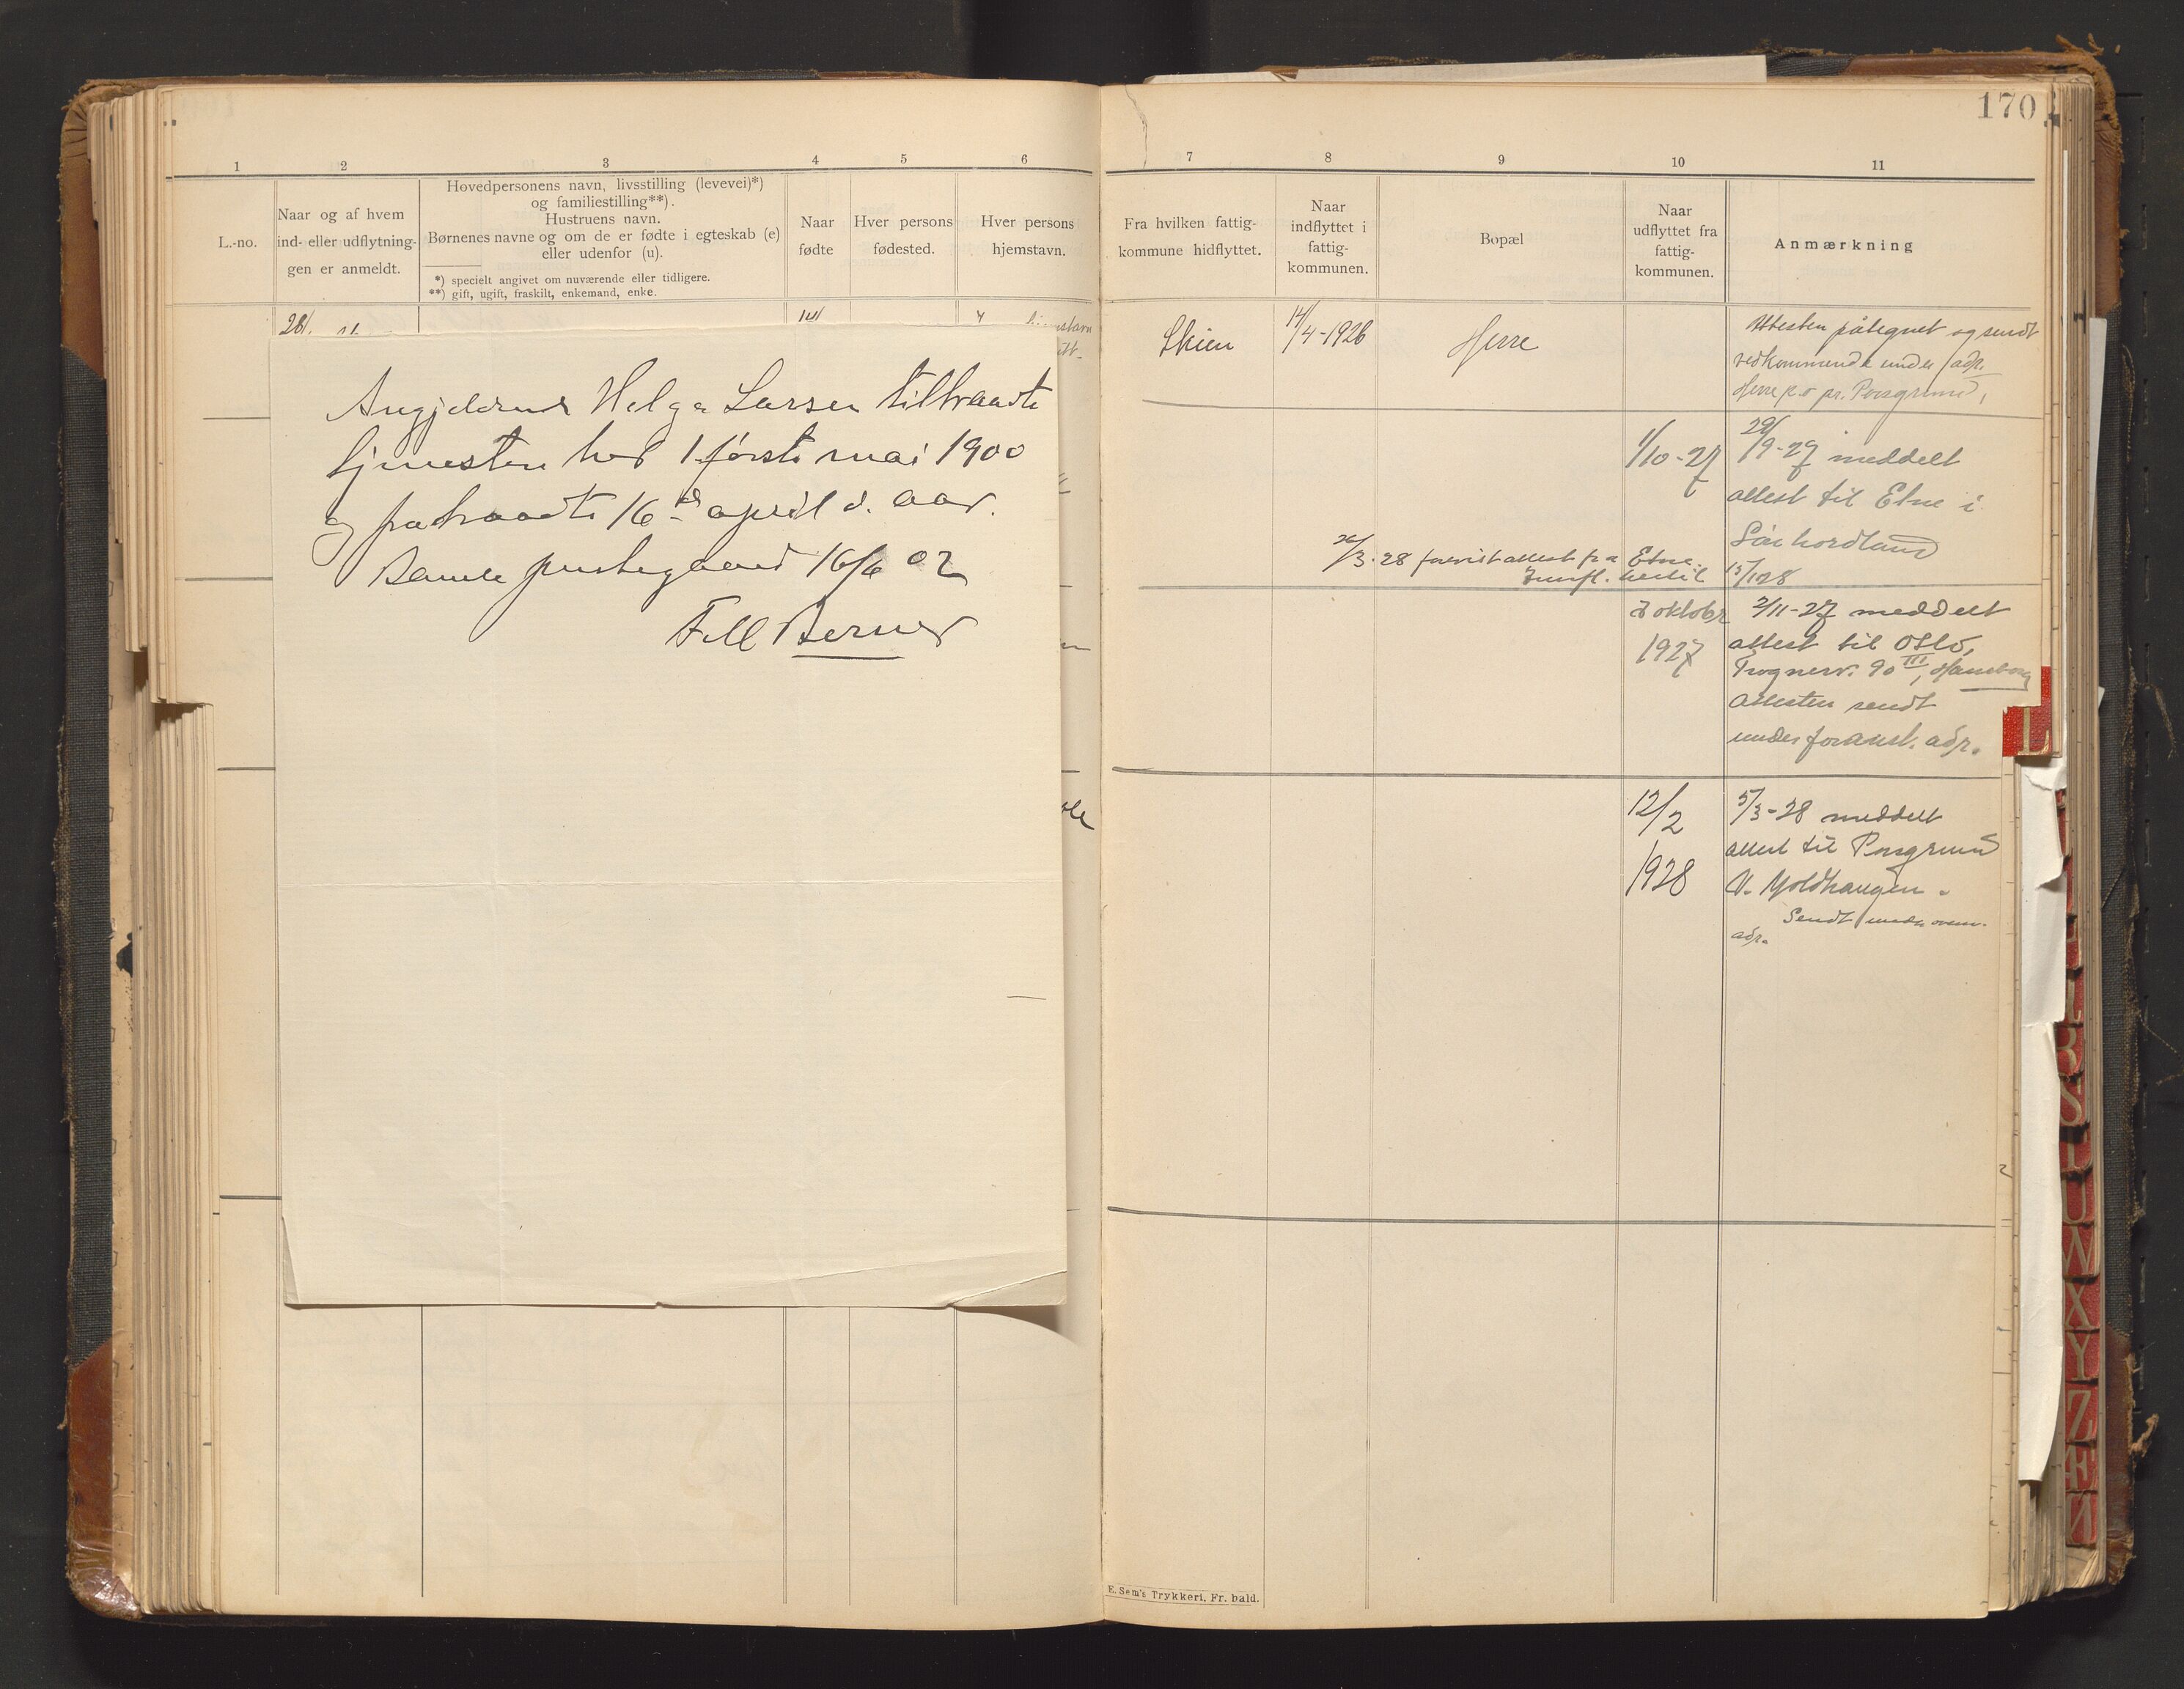 170
1
2
3
4
5
6
L.-no.
Naar og af hvem
ind- eller udflytnin-
gen er anmeldt.
Hovedpersonens navn, livsstilling (levevei)*)
og familiestilling**).
Hustruens navn.
Børnenes navne og om de er fødte i egteskab (e)
eller udenfor (u).
*) specielt angivet om nuværende eller tidligere.
**) gift, ugift, fraskilt, enkemand, enke.
Naar
fødte
Hver persons
fødested.
Hver persons
hjemstavn.
Angjeldende Helga Larsen tiltraadte
tjenesten her 1 første mai 1900
og fratraadte 16de april d. aar.
Bamle prestegaard 16/6 02
Fell Berner
7
8
9
10
11
Fra hvilken fattig-
kommune hidflyttet.
Naar
indflyttet i
fattig-
kommunen.
Bopæl
Naar
udflyttet fra
fattig-
kommunen.
Anmærkning
Skien
14/4-1926
Herre
Attesten påtegnet og sendt
vedkommende under adr.
Herre p.o pr. Porsgrund,
1/10-27
29/9-27 meddelt
attest til Etne i
Sönhordland
26/3-28 forevist attest fra Etne.
Innfl. hertil 15/1 28
3 oktober
1927
2/11-27 meddelt
attest til Oslo,
Frognerv. 90 III,
Attesten sendt
under foranst. adr.
12/2
1928
5/3-28 meddelt
attest til Porsgrund
V. Moldhaugen.
Sendt under ovenn.
adr.
L
S
T
U
W
X
Y
Z
Æ
E. Sem's Trykkeri, Fr. hald.